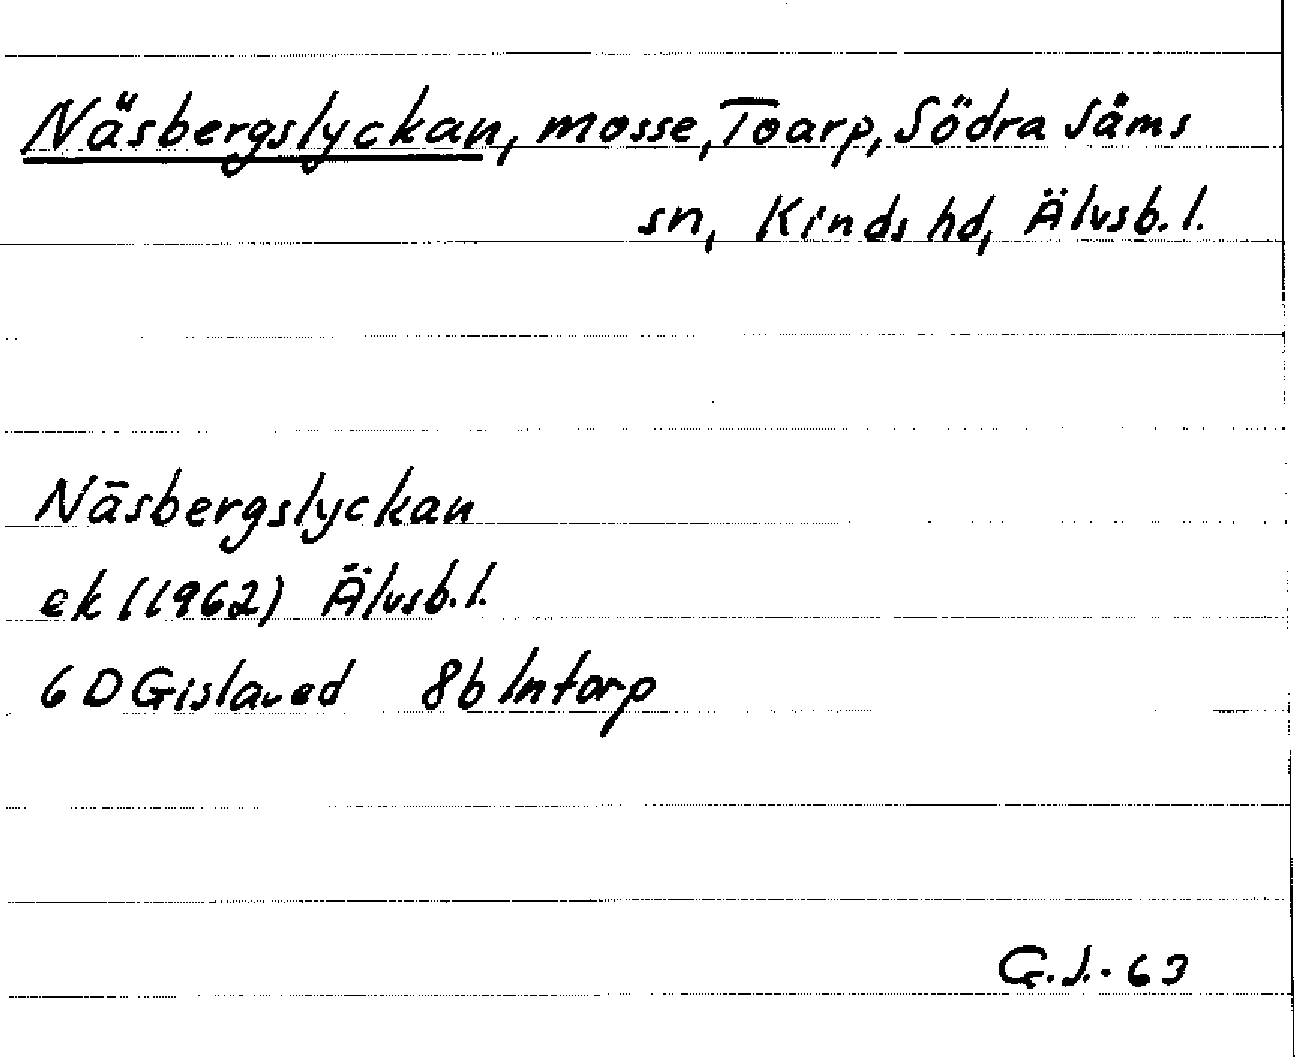 Näsbergslyckan, mosse, Toarp, Södra Såms
sn, Kinds hd, Älvsb. l.
Näsbergslyckan
ek (1962) Älvsb. l.
6 D Gislaved 8b Intorp
G.J.-63